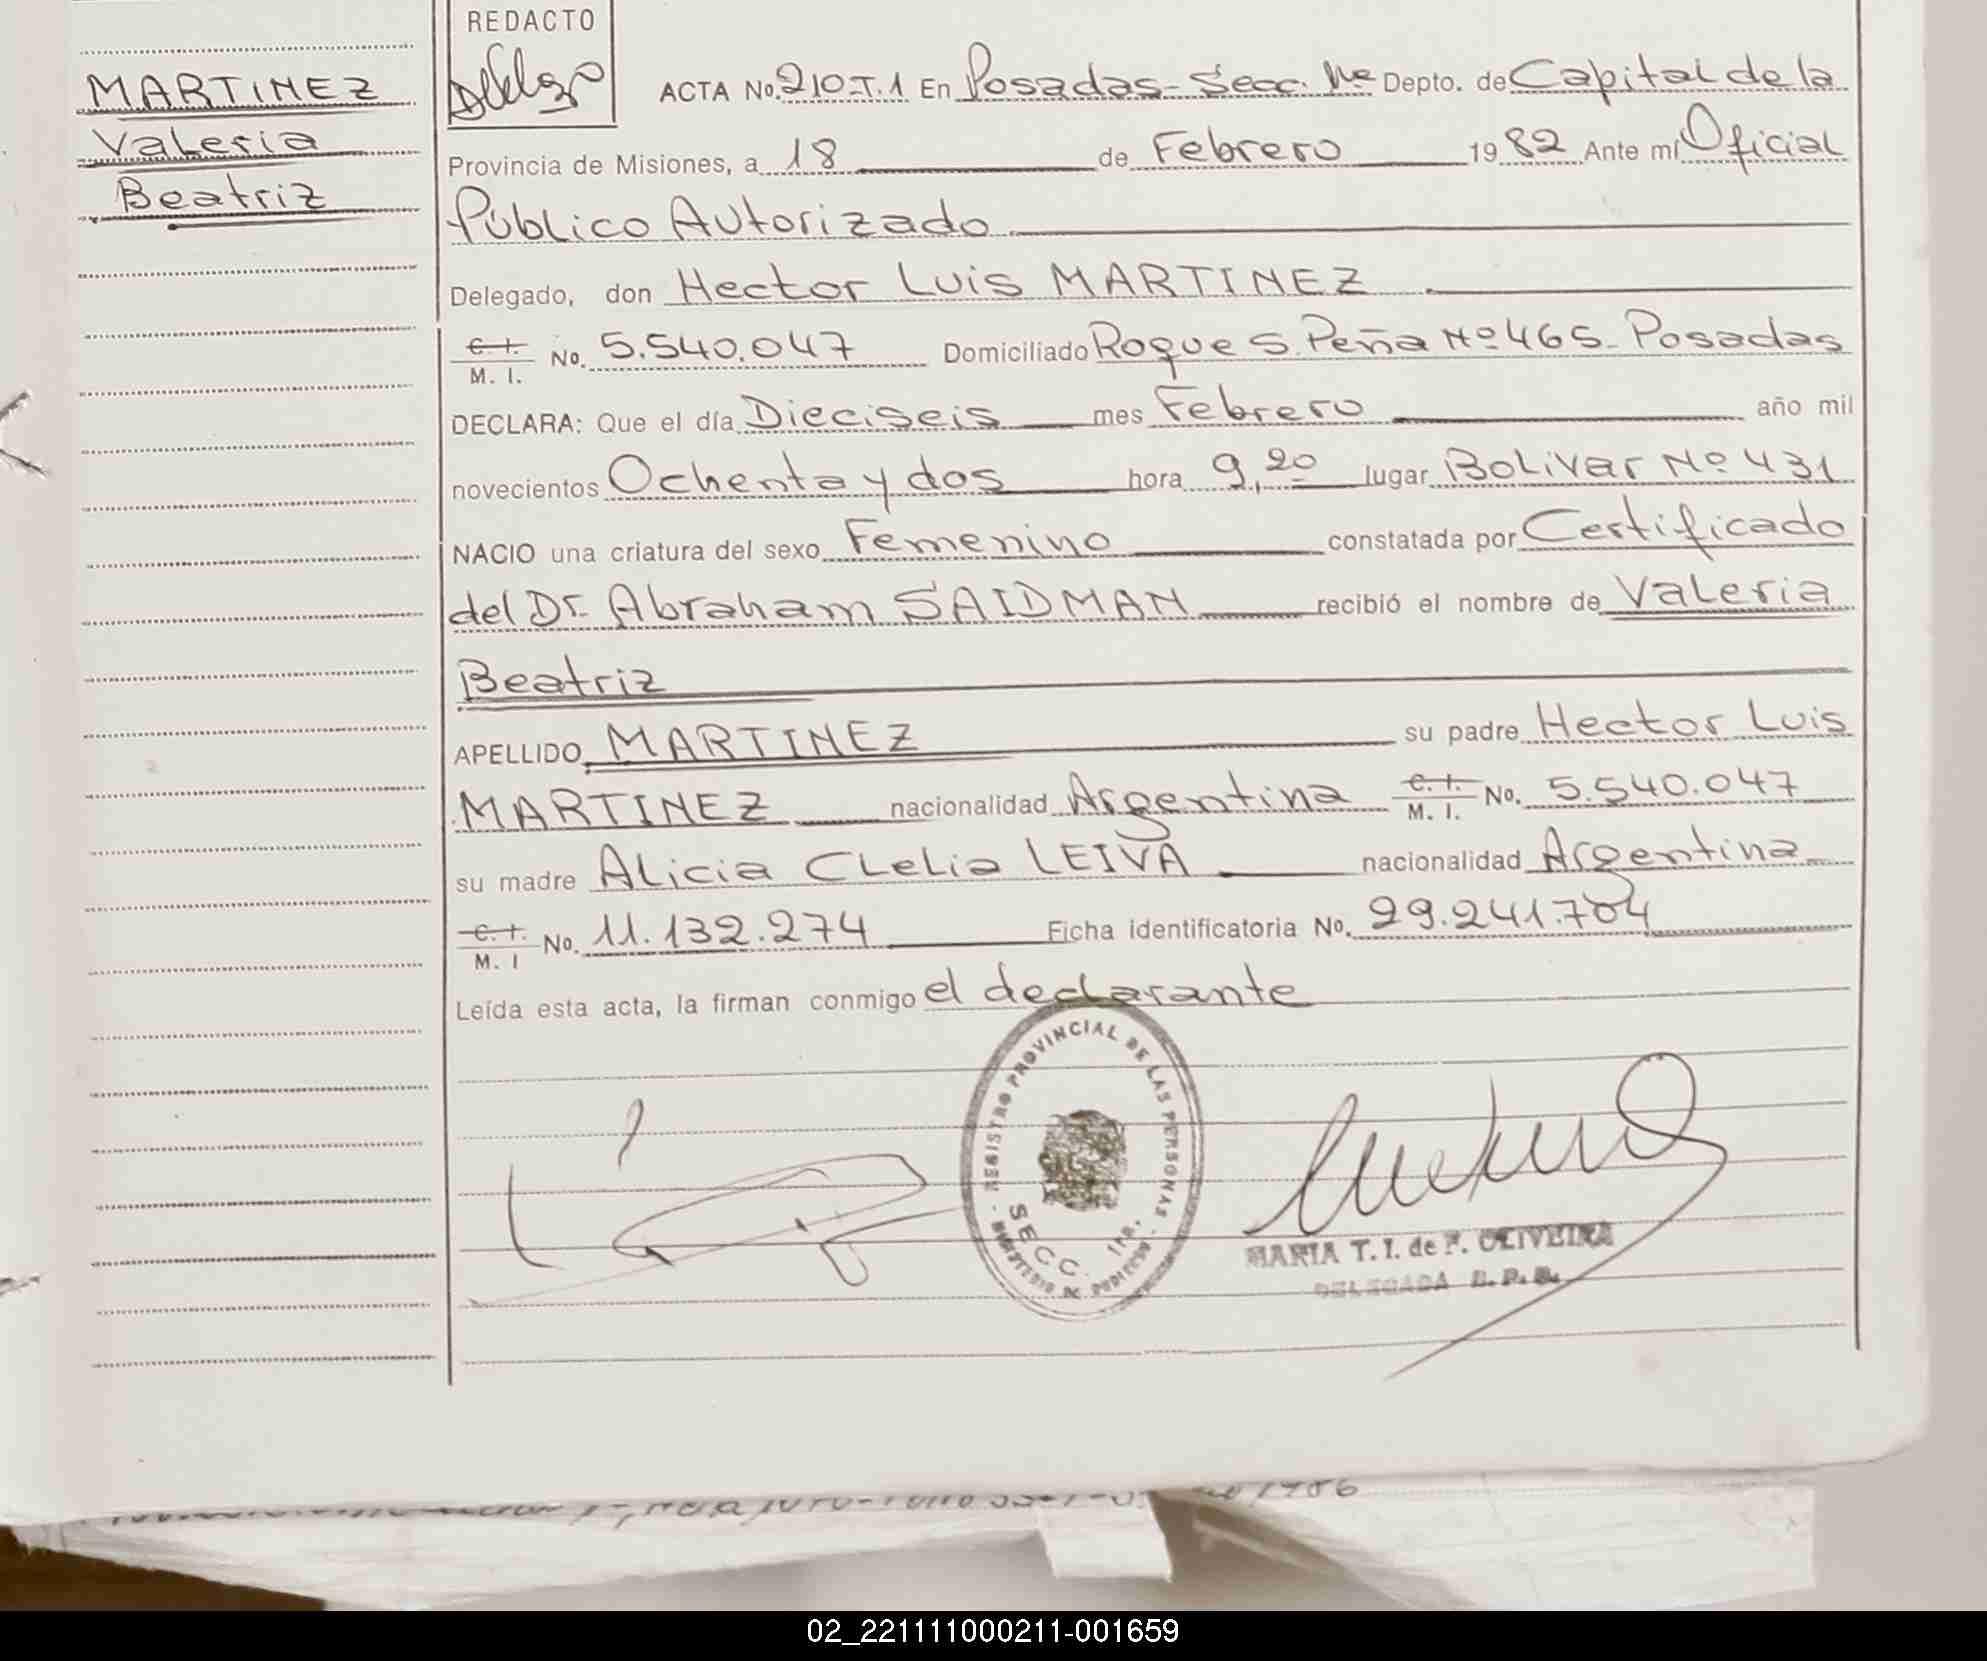 MARTINEZ
Valeria
Beatriz
REDACTO
ACTA No. 210-T.1 En Posadas-Secc. 1ra Depto. de Capital de la
Provincia de Misiones, a 18 de Febrero 1982 Ante mí Oficial
Público Autorizado
Delegado, don Hector Luis MARTINEZ
C. I.
M. I. No. 5.540.047 Domiciliado Roque S. Peña Nº 465 - Posadas
DECLARA: Que el día Dieciseis mes Febrero año mil
novecientos Ochenta y dos hora 9,20 lugar Bolivar Nº 431
NACIO una criatura del sexo Femenino constatada por Certificado
del Dr. Abraham SAIDMAN recibió el nombre de Valeria
Beatriz
APELLIDO MARTINEZ su padre Hector Luis
MARTINEZ nacionalidad Argentina C. I. M. I. No. 5.540.047
su madre Alicia Clelia LEIVA nacionalidad Argentina
C. I.
M. I No. 11.132.274 Ficha identificatoria No. 29.241.784
Leída esta acta, la firman conmigo el declarante
REGISTRO PROVINCIAL DE LAS PERSONAS
SECC. 1ra.
MINISTERIO DE GOBIERNO
MARIA T. I. de F. OLIVEIRA
DELEGADA R. P. P.
02_221111000211-001659